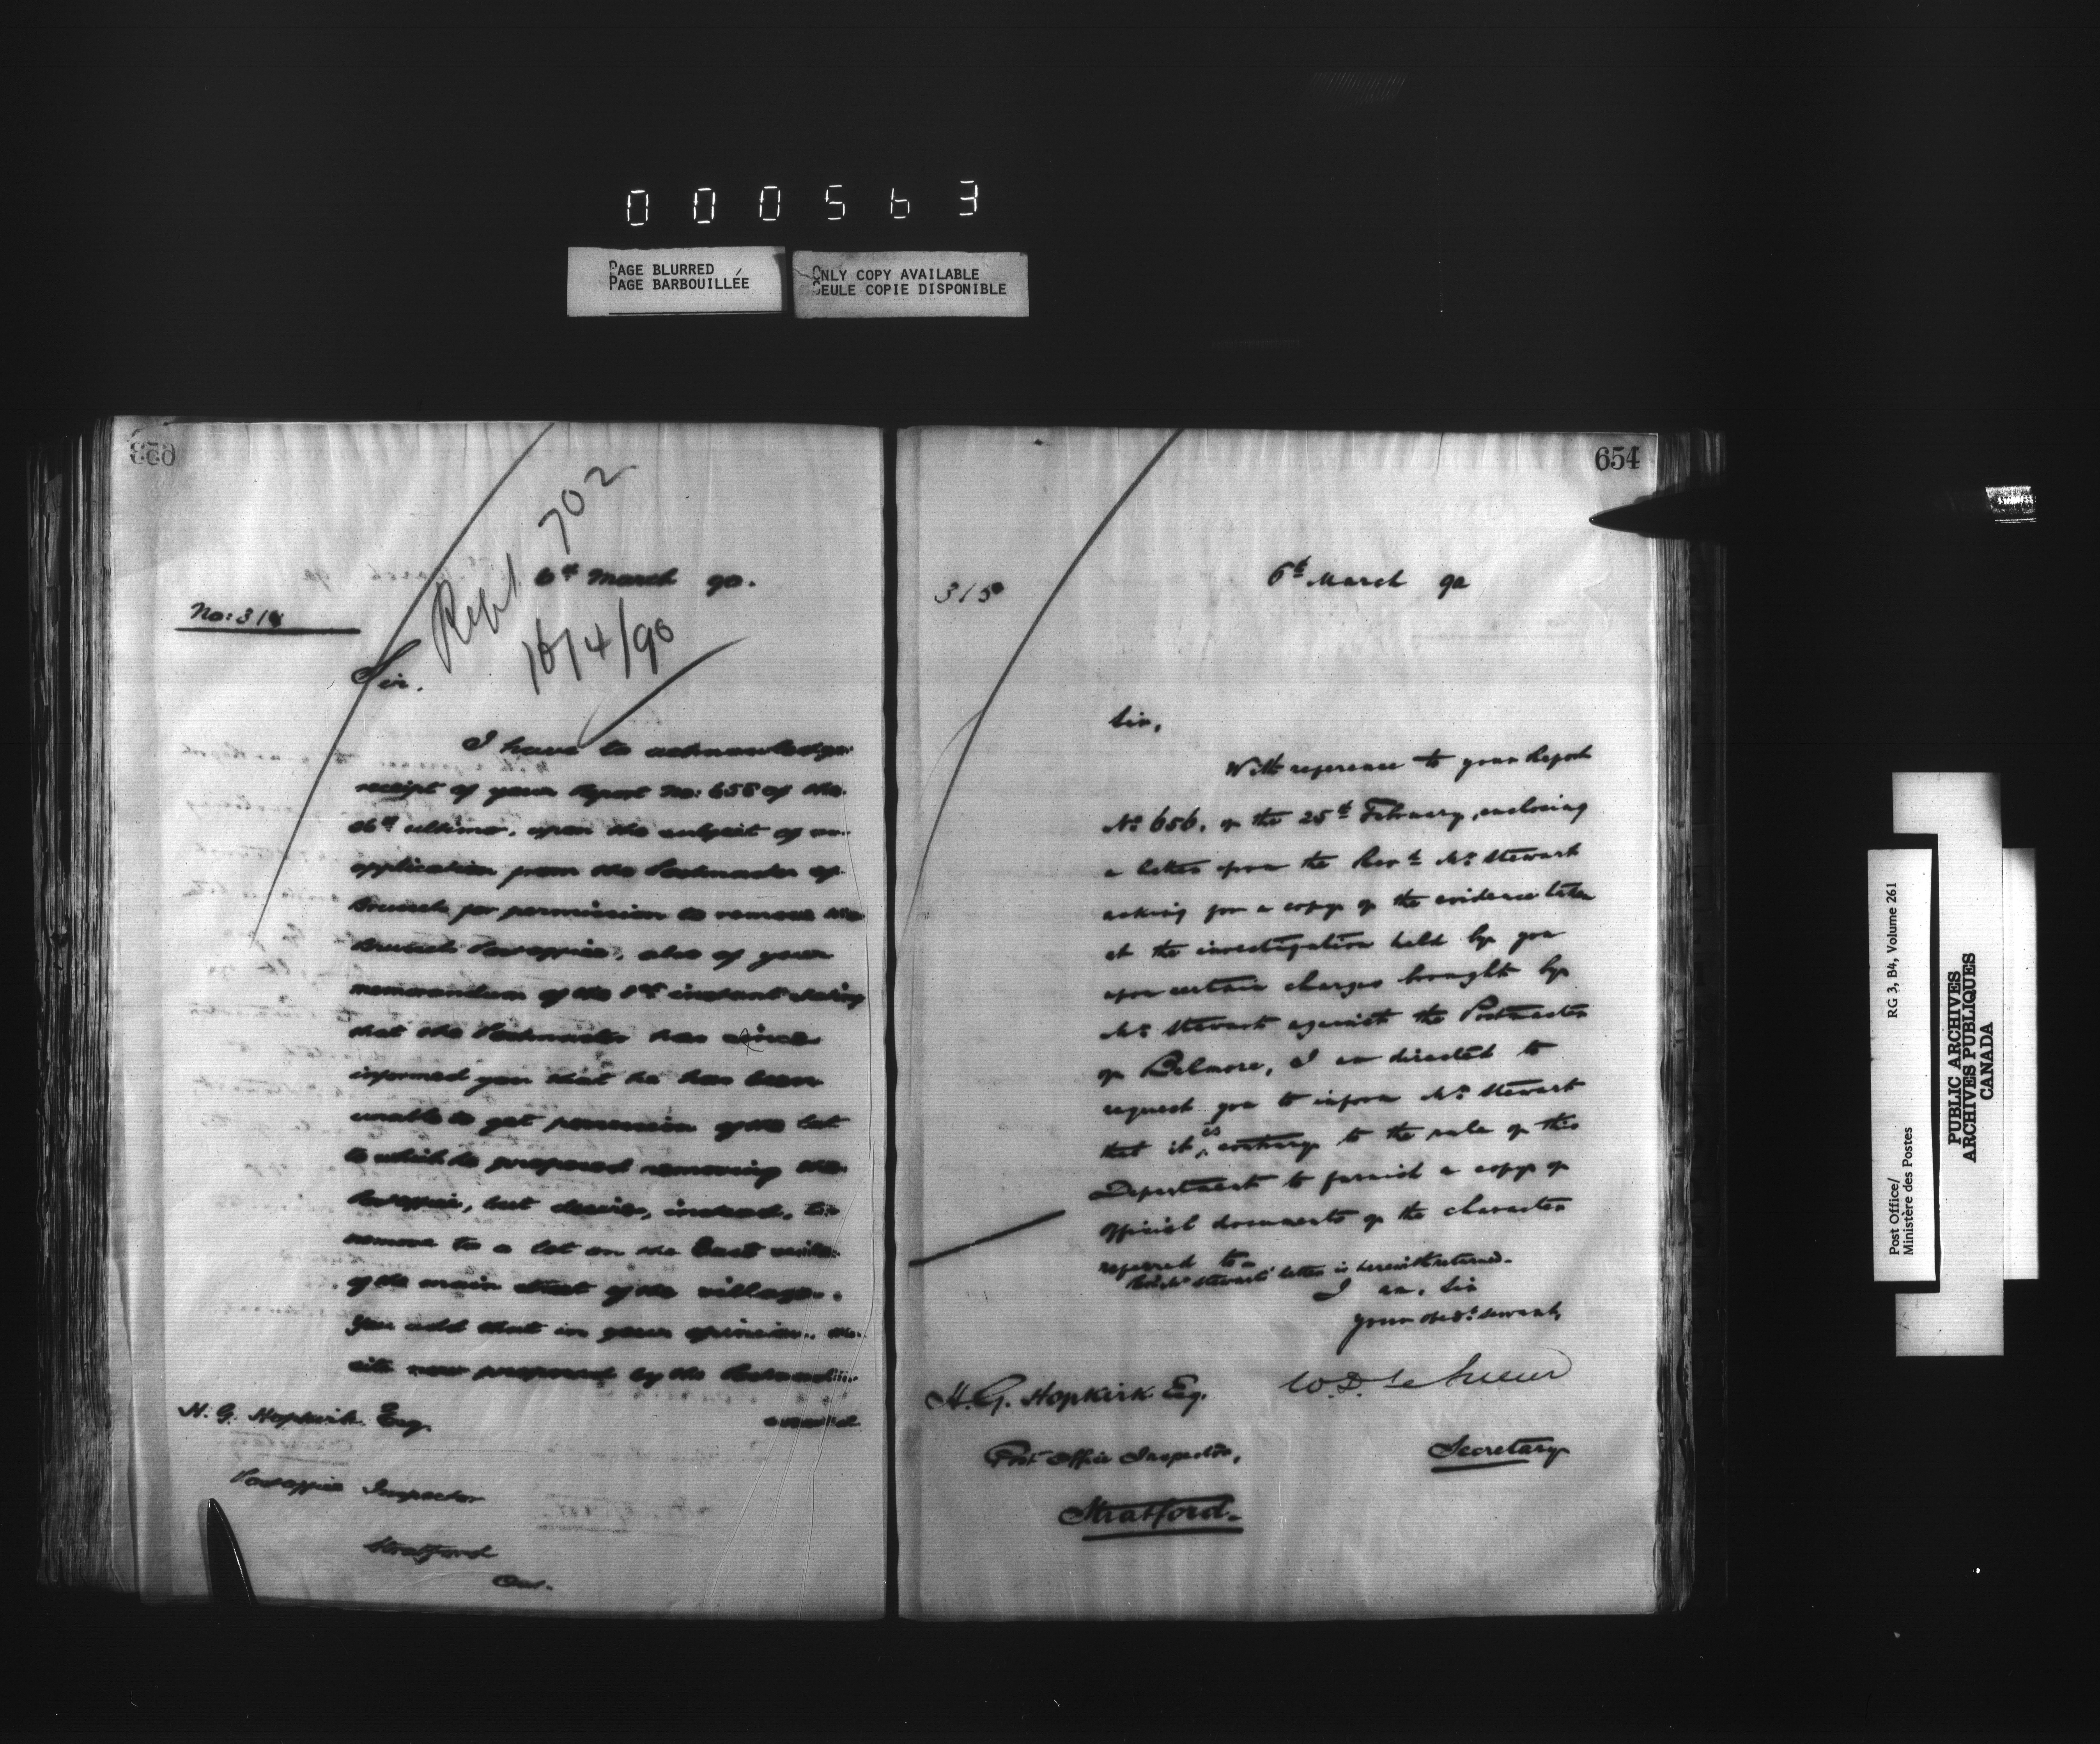 000563
PAGE BLURRED
PAGE BARBOUILLÉE
ONLY COPY AVAILABLE
SEULE COPIE DISPONIBLE
653
Rept 702
16/4/90
6th March 90.
No: 314
Sir.
I have to acknowledge
receipt of your Report No: 658 of the
26th ultimo, upon the subject of an
application from the Postmaster of
Brussels for permission to remove the
Brussels Postoffice, also of your
memorandum of the 1st instant stating
that the Postmaster has since
informed you that he has been
unable to get possession of the lot
to which he proposed removing the
Postoffice, but desires, instead, to
remove to a lot on the East side
of the main street of the village.
You add that in your opinion the
site now proposed by the
H. G. Hopkirk Esq.
Postoffice Inspector
Stratford
Ont.
654
315
6th March 90
Sir,
With reference to your Report
No 656, of the 25th February, enclosing
a letter from the Revd Mr Stewart
asking for a copy of the evidence taken
at the investigation held by you
upon certain charges brought by
Mr Stewart against the Postmaster
of Belmore, I am directed to
request you to inform Mr Stewart
that it is contrary to the rule of this
Department to furnish a copy of
official documents of the character
referred to.
Revd Mr Stewart's letter is herewith returned.
I am, Sir
Your obedt. servant,
W. D. LeSueur
Secretary
H. G. Hopkirk Esq.
Post Office Inspector,
Stratford.
Post Office/
Ministère des Postes
RG 3, B4, Volume 261
PUBLIC ARCHIVES
ARCHIVES PUBLIQUES
CANADA